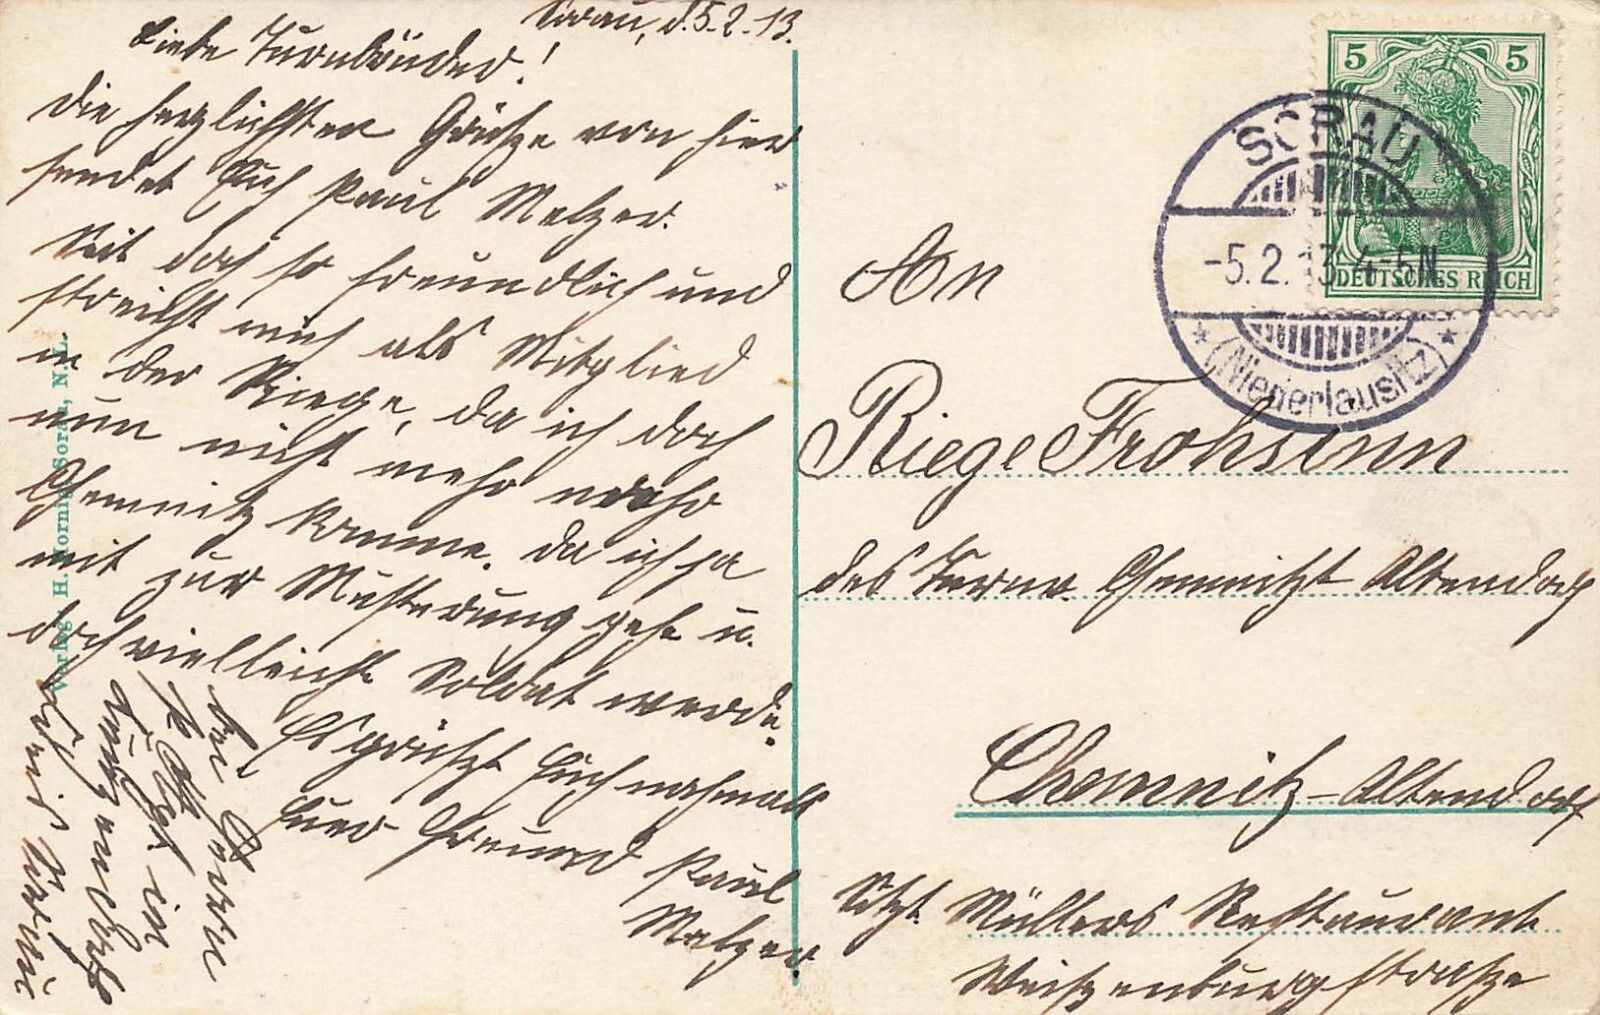 Sorau, d. 5.2.13.
Liebe Turnbrüder!
Die herzlichsten Grüße von hier
sendet Euch Paul Melzer.
Seit doch so freundlich und
streicht mich als Mitglied
in der Riege, da ich doch
nun nicht mehr nach
Chemnitz komme. Da ich ja
mit zur Musterung gehe u.
doch vielleicht Soldat werde.
Es grüßt Euch nochmals
Euer Freund Paul
Melzer.
bei
in
Verlag H. Hornig Sorau, N.-L.
5 5
DEUTSCHES REICH
SORAU
-5.2.13.4-5N.
* (Niederlausitz) *
An
Riege Frohsinn
des Turnv. Chemnitzt Altendorf
Chemnitz-Altendorf
Sitzt Müllers Restaurant
Weißenburgstraße